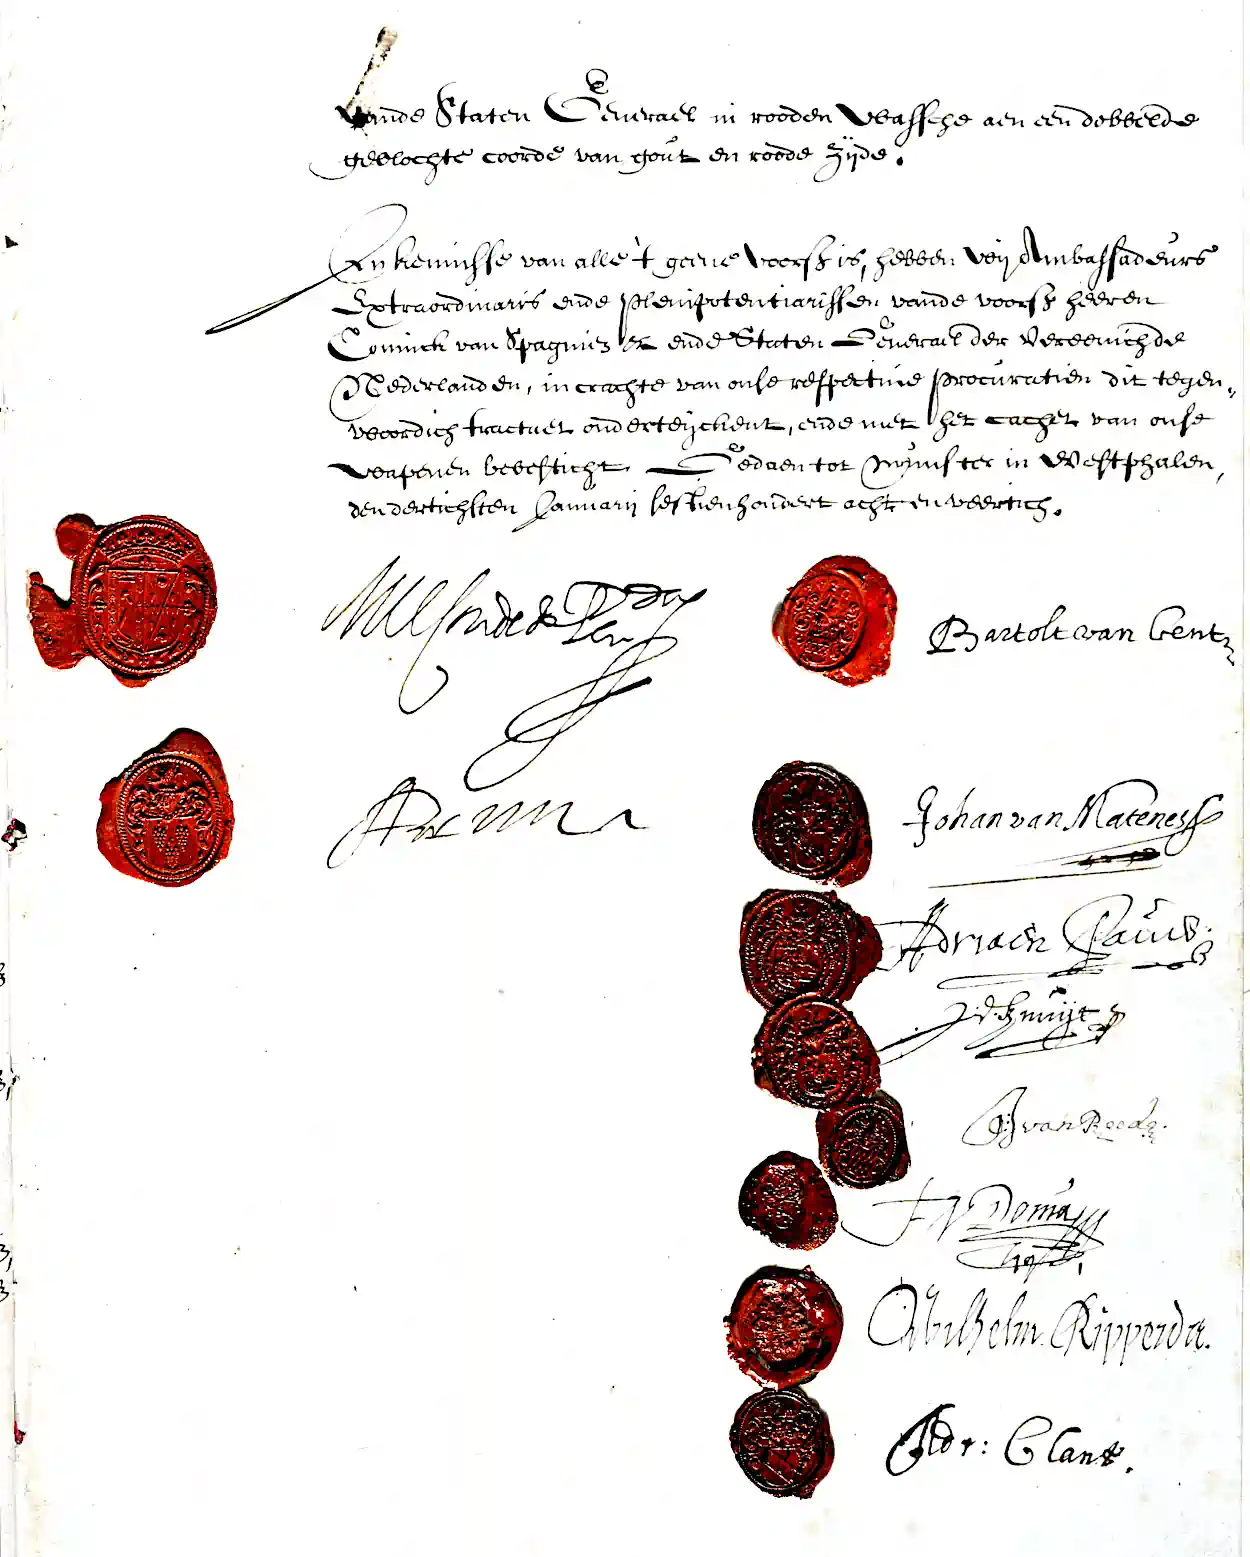 vande Staten Generael in rooden Wassche aen een dobbelde
gevlochte coorde van gout en roode zijde.
In kennisse van alle 't geene voorsz is, hebben Wij Ambassadeurs
Extraordinaris ende Plenipotentiarissen vande voorsz heeren
Coninck van Spagnien ende Staten Generael der Vereenichde
Nederlanden, in crachte van onse respective Procuratien dit tegen„
woordich tractaet onderteijckent, ende met het cachet van onse
wapenen bevesticht. Gedaen tot Munster in Westphalen,
den dertichsten Januarij sestienhondert acht en veertich.
Bartolt van Gent
Johan van Matenesse
Adriaen Pauw
J. d. Knuijt
GJ van Reede
F V Donia
Wilhelm Ripperda.
Adr: Clant.